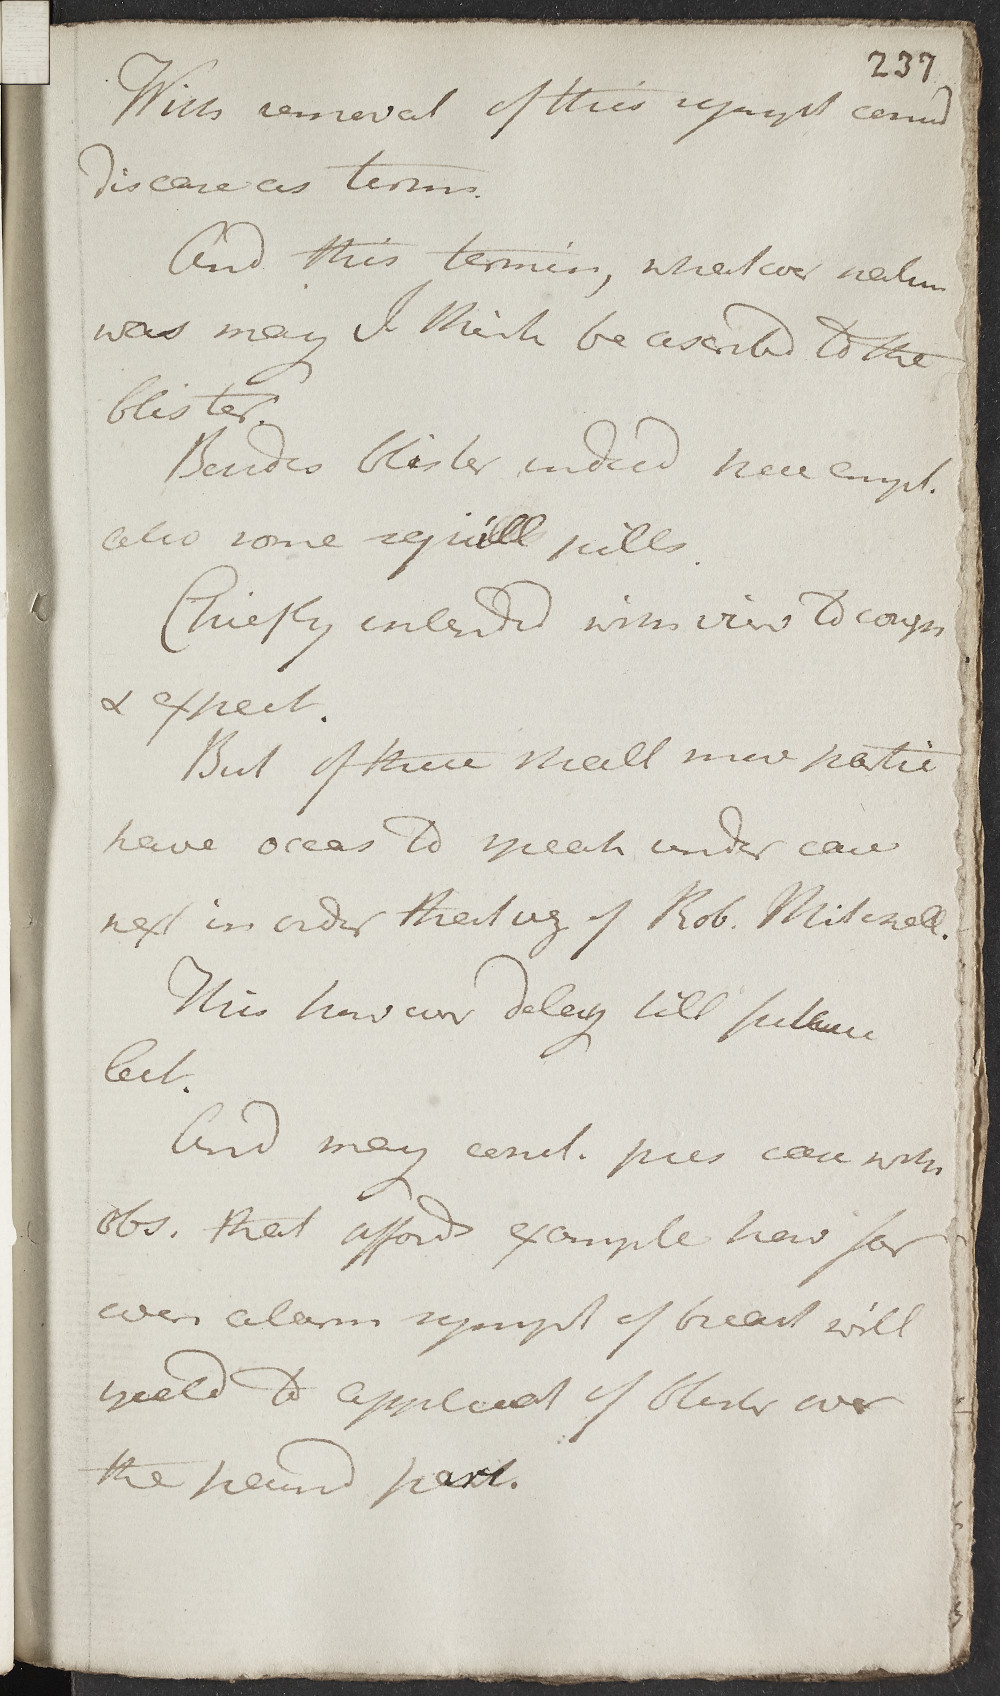 237
With removal of this sympt consid
disease as termin.
And this termin, whatever nature
was may I think be ascribed to the
blister.
Besides blister indeed have empl.
also some squill pills.
Chiefly intended with view to cough
& expect.
But of these shall more partic
have occas to speak under case
next in order that viz of Rob. Mitchell.
This however delay till future
lect.
And may concl. pres case with
obs. that affords example how far
even alarm sympt of breast will
yield to applicat of blister over
the pained part.